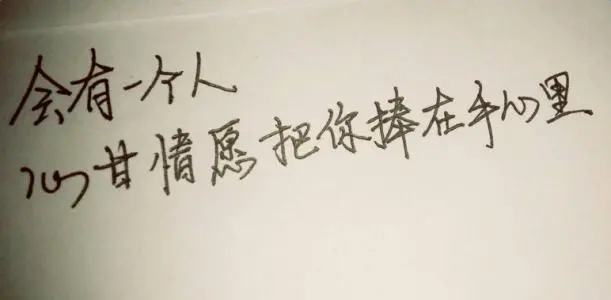 会有一个人
心甘情愿把你捧在手心里